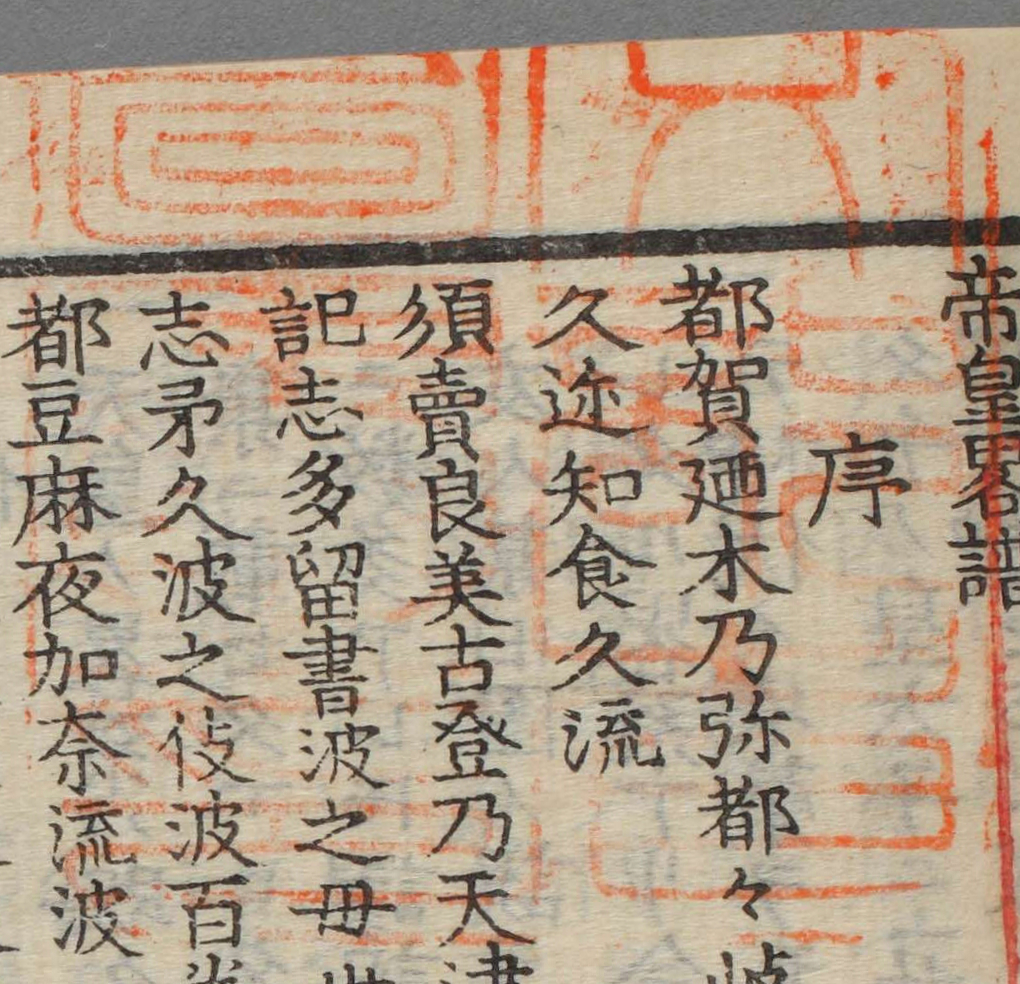 帝皇畧譜
序
都賀廼木乃弥都々
久迩知食久流
須賣良美古登乃天津
記志多留書波之毌
志矛久波之伎波百
都豆麻夜加奈流波